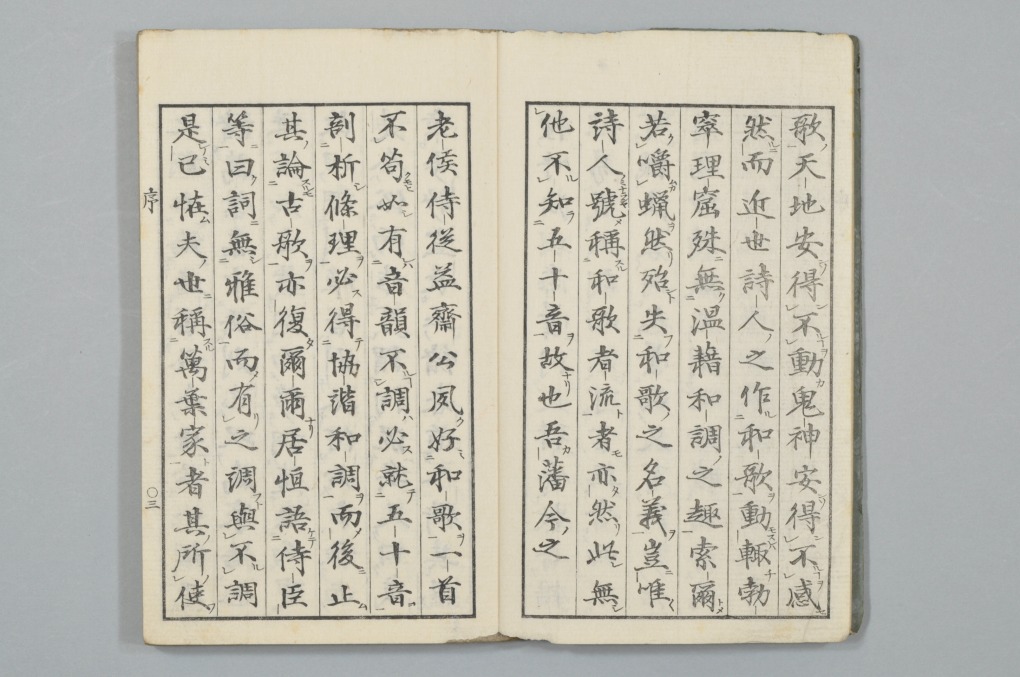 歌天地安得不動鬼神安得不感
然而近世詩人之作和歌動輙勃
窣理窟殊無温藉和調之趣索爾
若嚼蝋然殆失和歌之名義豈唯
詩人號稱和歌者流者亦然此無
他不知五十音故也吾藩今之
老侯侍從益齋公夙好和歌一首
不苟如有音韻不調必就五十音
剖析條理必得協諧和調而後止
其論古歌亦復爾爾居恒語侍臣
等曰詞無雅俗而有之調與不調
是已恠夫世稱萬葉家者其所使
序
〇三